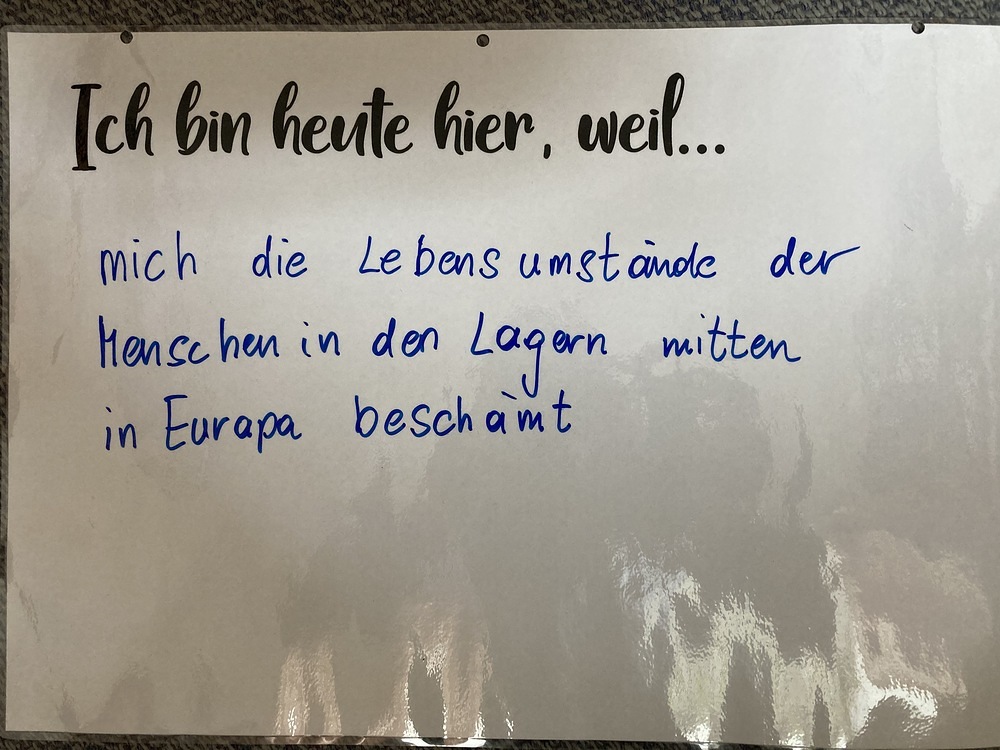 Ich bin heute hier, weil...
mich die Lebensumstände der
Menschen in den Lagern mitten
in Europa beschämt